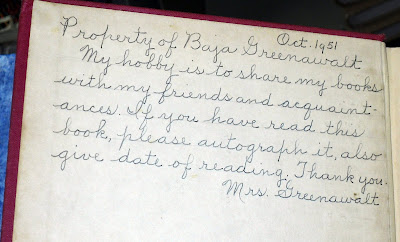 Oct. 1951
Property of Baja Greenawalt
My hobby is to share my books
with my friends and acquaint-
ances. If you have read this
book, please autograph it, also
give date of reading. Thank you.
Mrs. Greenawalt